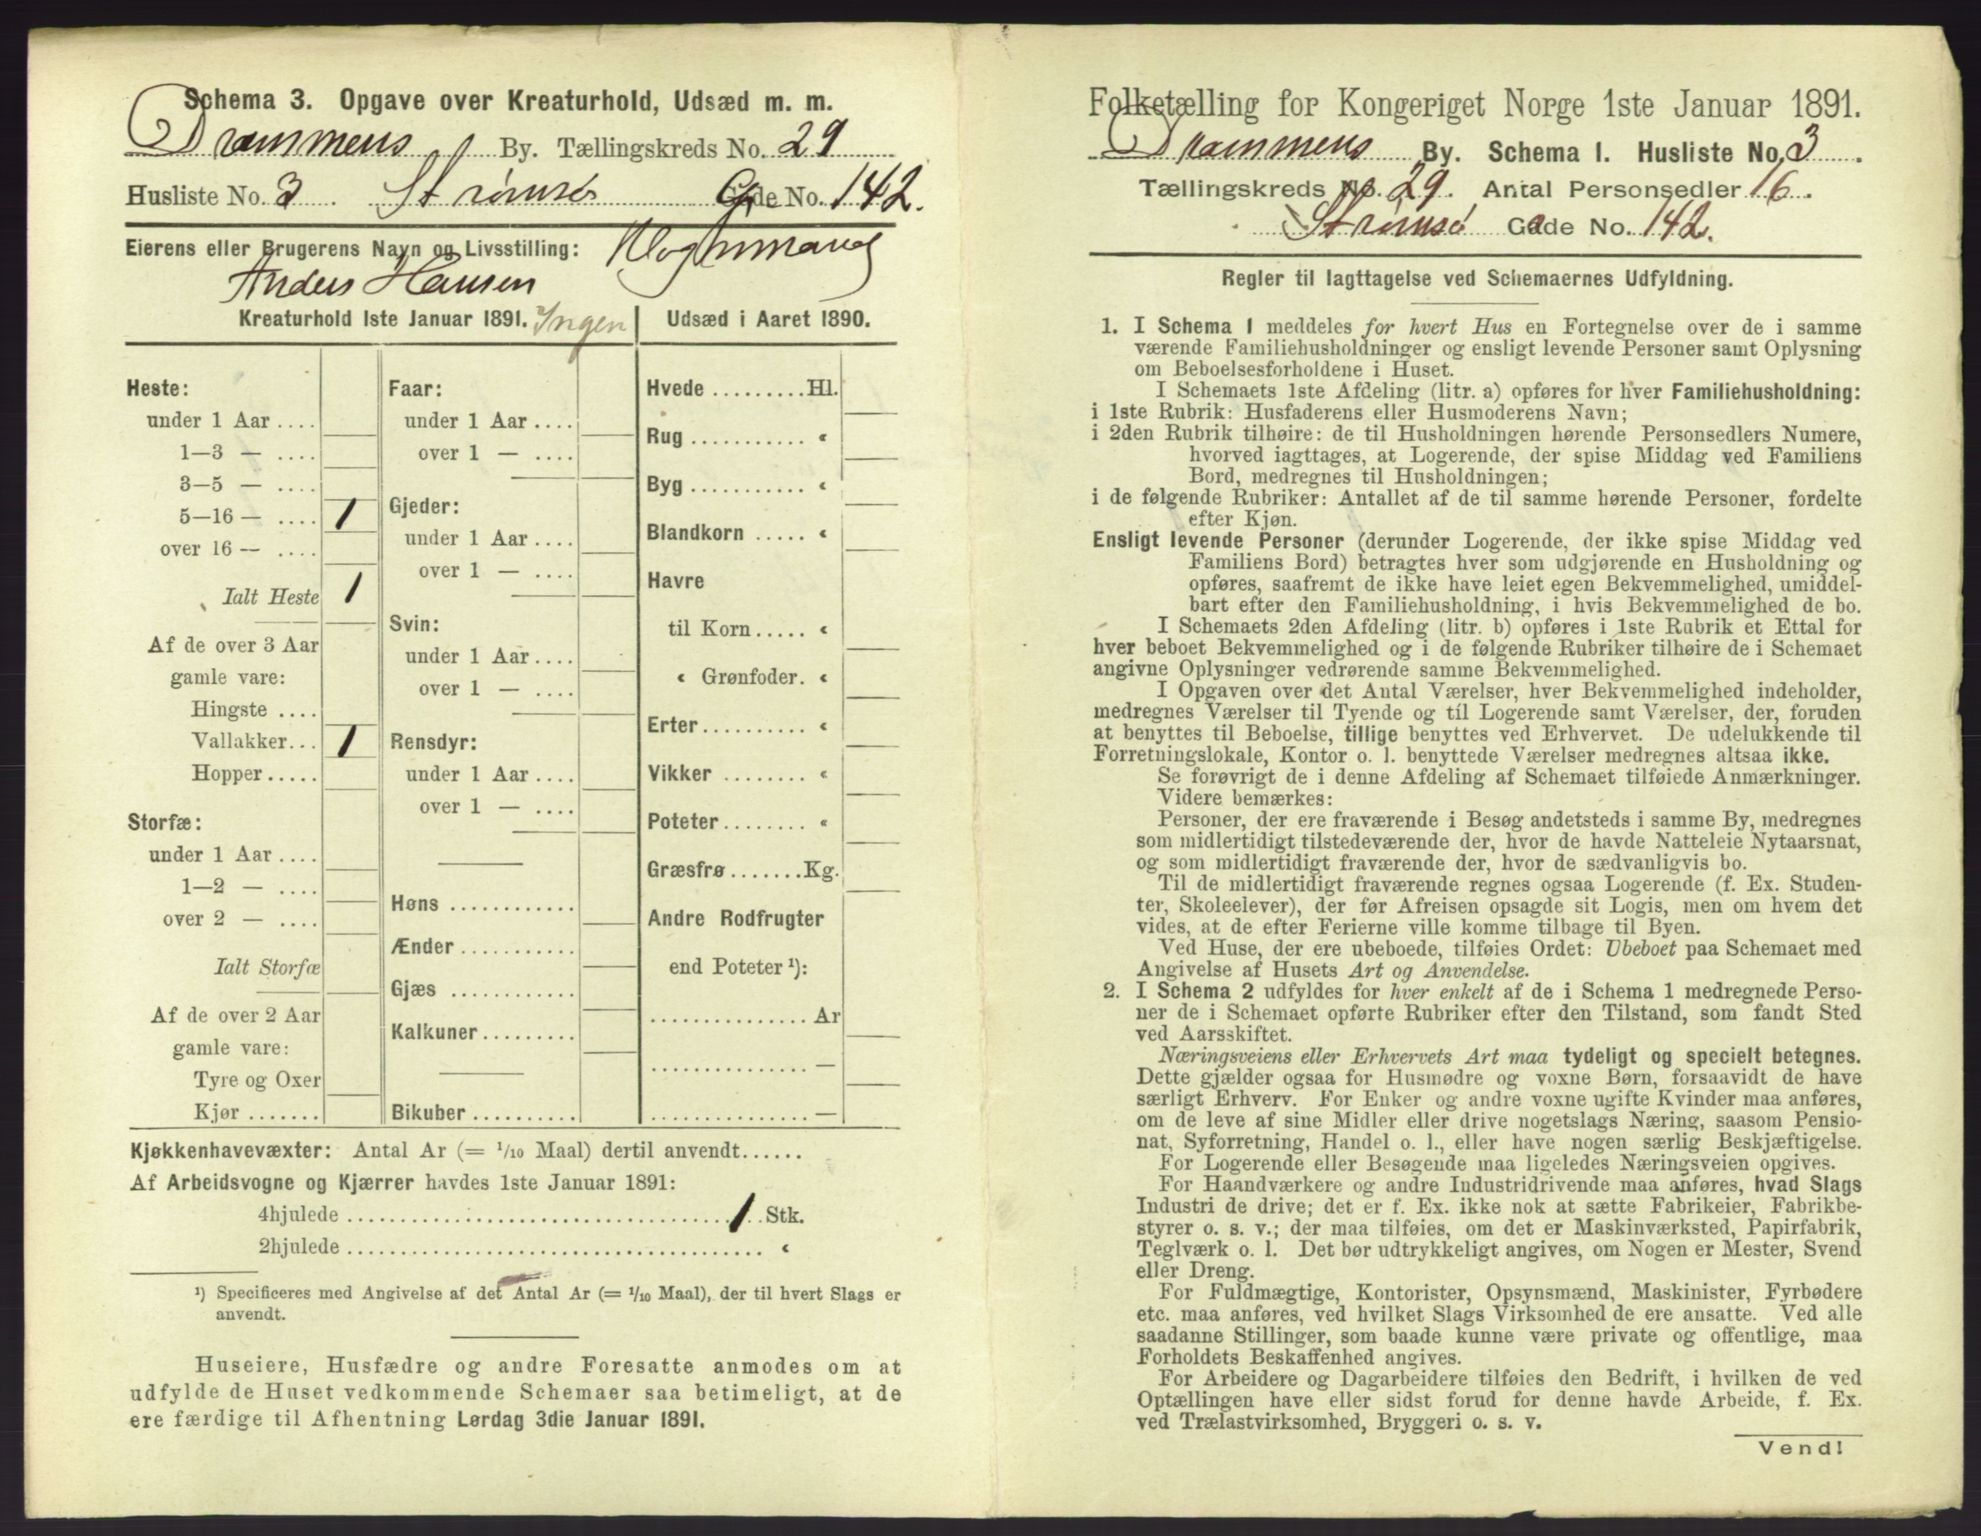 Schema 3. Opgave over Kreaturhold, Udsæd m. m.
Drammens By. Tællingskreds No. 29
Husliste No. 3 Strømsø Gade No. 142.
Eierens eller Brugerens Navn og Livsstilling: Vognmand
Anders Hansen
Kreaturhold 1ste Januar 1891. Ingen
Heste:
under 1 Aar ....
1—3 — ....
3—5 — ....
5—16 — .... 1
over 16 — ....
Ialt Heste 1
Af de over 3 Aar
gamle vare:
Hingste ....
Vallakker... 1
Hopper.....
Storfæ:
under 1 Aar ....
1—2 — ....
over 2 — ....
Ialt Storfæ
Af de over 2 Aar
gamle vare:
Tyre og Oxer
Kjør .......
Faar:
under 1 Aar ....
over 1 — ....
Gjeder:
under 1 Aar ....
over 1 — ....
Svin:
under 1 Aar ....
over 1 — ....
Rensdyr:
under 1 Aar ....
over 1 — ....
Høns ............
Ænder ...........
Gjæs ............
Kalkuner.........
Bikuber ..........
Udsæd i Aaret 1890.
Hvede .........Hl.
Rug ........... «
Byg ........... «
Blandkorn ..... «
Havre
til Korn ..... «
« Grønfoder. «
Erter.......... «
Vikker ........ «
Poteter........ «
Græsfrø .......Kg.
Andre Rodfrugter
end Poteter ¹):
............... Ar
............... —
............... —
Kjøkkenhavevæxter: Antal Ar (= 1/10 Maal) dertil anvendt......
Af Arbeidsvogne og Kjærrer havdes 1ste Januar 1891:
4hjulede .................................. 1 Stk.
2hjulede .................................. «
¹) Specificeres med Angivelse af det Antal Ar (= 1/10 Maal), der til hvert Slags er
anvendt.
Huseiere, Husfædre og andre Foresatte anmodes om at
udfylde de Huset vedkommende Schemaer saa betimeligt, at de
ere færdige til Afhentning Lørdag 3die Januar 1891.
Folketælling for Kongeriget Norge 1ste Januar 1891.
Drammens By. Schema 1. Husliste No. 3.
Tællingskreds No. 29. Antal Personsedler 16.
Strømsø Gade No. 142.
Regler til Iagttagelse ved Schemaernes Udfyldning.
1. I Schema 1 meddeles for hvert Hus en Fortegnelse over de i samme
værende Familiehusholdninger og ensligt levende Personer samt Oplysning
om Beboelsesforholdene i Huset.
I Schemaets 1ste Afdeling (litr. a) opføres for hver Familiehusholdning:
i 1ste Rubrik: Husfaderens eller Husmoderens Navn;
i 2den Rubrik tilhøire: de til Husholdningen hørende Personsedlers Numere,
hvorved iagttages, at Logerende, der spise Middag ved Familiens
Bord, medregnes til Husholdningen;
i de følgende Rubriker: Antallet af de til samme hørende Personer, fordelte
efter Kjøn.
Ensligt levende Personer (derunder Logerende, der ikke spise Middag ved
Familiens Bord) betragtes hver som udgjørende en Husholdning og
opføres, saafremt de ikke have leiet egen Bekvemmelighed, umiddel-
bart efter den Familiehusholdning, i hvis Bekvemmelighed de bo.
I Schemaets 2den Afdeling (litr. b) opføres i 1ste Rubrik et Ettal for
hver beboet Bekvemmelighed og i de følgende Rubriker tilhøire de i Schemaet
angivne Oplysninger vedrørende samme Bekvemmelighed.
I Opgaven over det Antal Værelser, hver Bekvemmelighed indeholder,
medregnes Værelser til Tyende og til Logerende samt Værelser, der, foruden
at benyttes til Beboelse, tillige benyttes ved Erhvervet. De udelukkende til
Forretningslokale, Kontor o. l. benyttede Værelser medregnes altsaa ikke.
Se forøvrigt de i denne Afdeling af Schemaet tilføiede Anmærkninger.
Videre bemærkes:
Personer, der ere fraværende i Besøg andetsteds i samme By, medregnes
som midlertidigt tilstedeværende der, hvor de havde Natteleie Nytaarsnat,
og som midlertidigt fraværende der, hvor de sædvanligvis bo.
Til de midlertidigt fraværende regnes ogsaa Logerende (f. Ex. Studen-
ter, Skoleelever), der før Afreisen opsagde sit Logis, men om hvem det
vides, at de efter Ferierne ville komme tilbage til Byen.
Ved Huse, der ere ubeboede, tilføies Ordet: Ubeboet paa Schemaet med
Angivelse af Husets Art og Anvendelse.
2. I Schema 2 udfyldes for hver enkelt af de i Schema 1 medregnede Perso-
ner de i Schemaet opførte Rubriker efter den Tilstand, som fandt Sted
ved Aarsskiftet.
Næringsveiens eller Erhvervets Art maa tydeligt og specielt betegnes.
Dette gjælder ogsaa for Husmødre og voxne Børn, forsaavidt de have
særligt Erhverv. For Enker og andre voxne ugifte Kvinder maa anføres,
om de leve af sine Midler eller drive nogetslags Næring, saasom Pensio-
nat, Syforretning, Handel o. l., eller have nogen særlig Beskjæftigelse.
For Logerende eller Besøgende maa ligeledes Næringsveien opgives.
For Haandværkere og andre Industridrivende maa anføres, hvad Slags
Industri de drive; det er f. Ex. ikke nok at sætte Fabrikeier, Fabrikbe-
styrer o. s. v.; der maa tilføies, om det er Maskinværksted, Papirfabrik,
Teglværk o. l. Det bør udtrykkeligt angives, om Nogen er Mester, Svend
eller Dreng.
For Fuldmægtige, Kontorister, Opsynsmænd, Maskinister, Fyrbødere
etc. maa anføres, ved hvilket Slags Virksomhed de ere ansatte. Ved alle
saadanne Stillinger, som baade kunne være private og offentlige, maa
Forholdets Beskaffenhed angives.
For Arbeidere og Dagarbeidere tilføies den Bedrift, i hvilken de ved
Optællingen have eller sidst forud for denne havde Arbeide, f. Ex.
ved Trælastvirksomhed, Bryggeri o. s. v.
Vend!